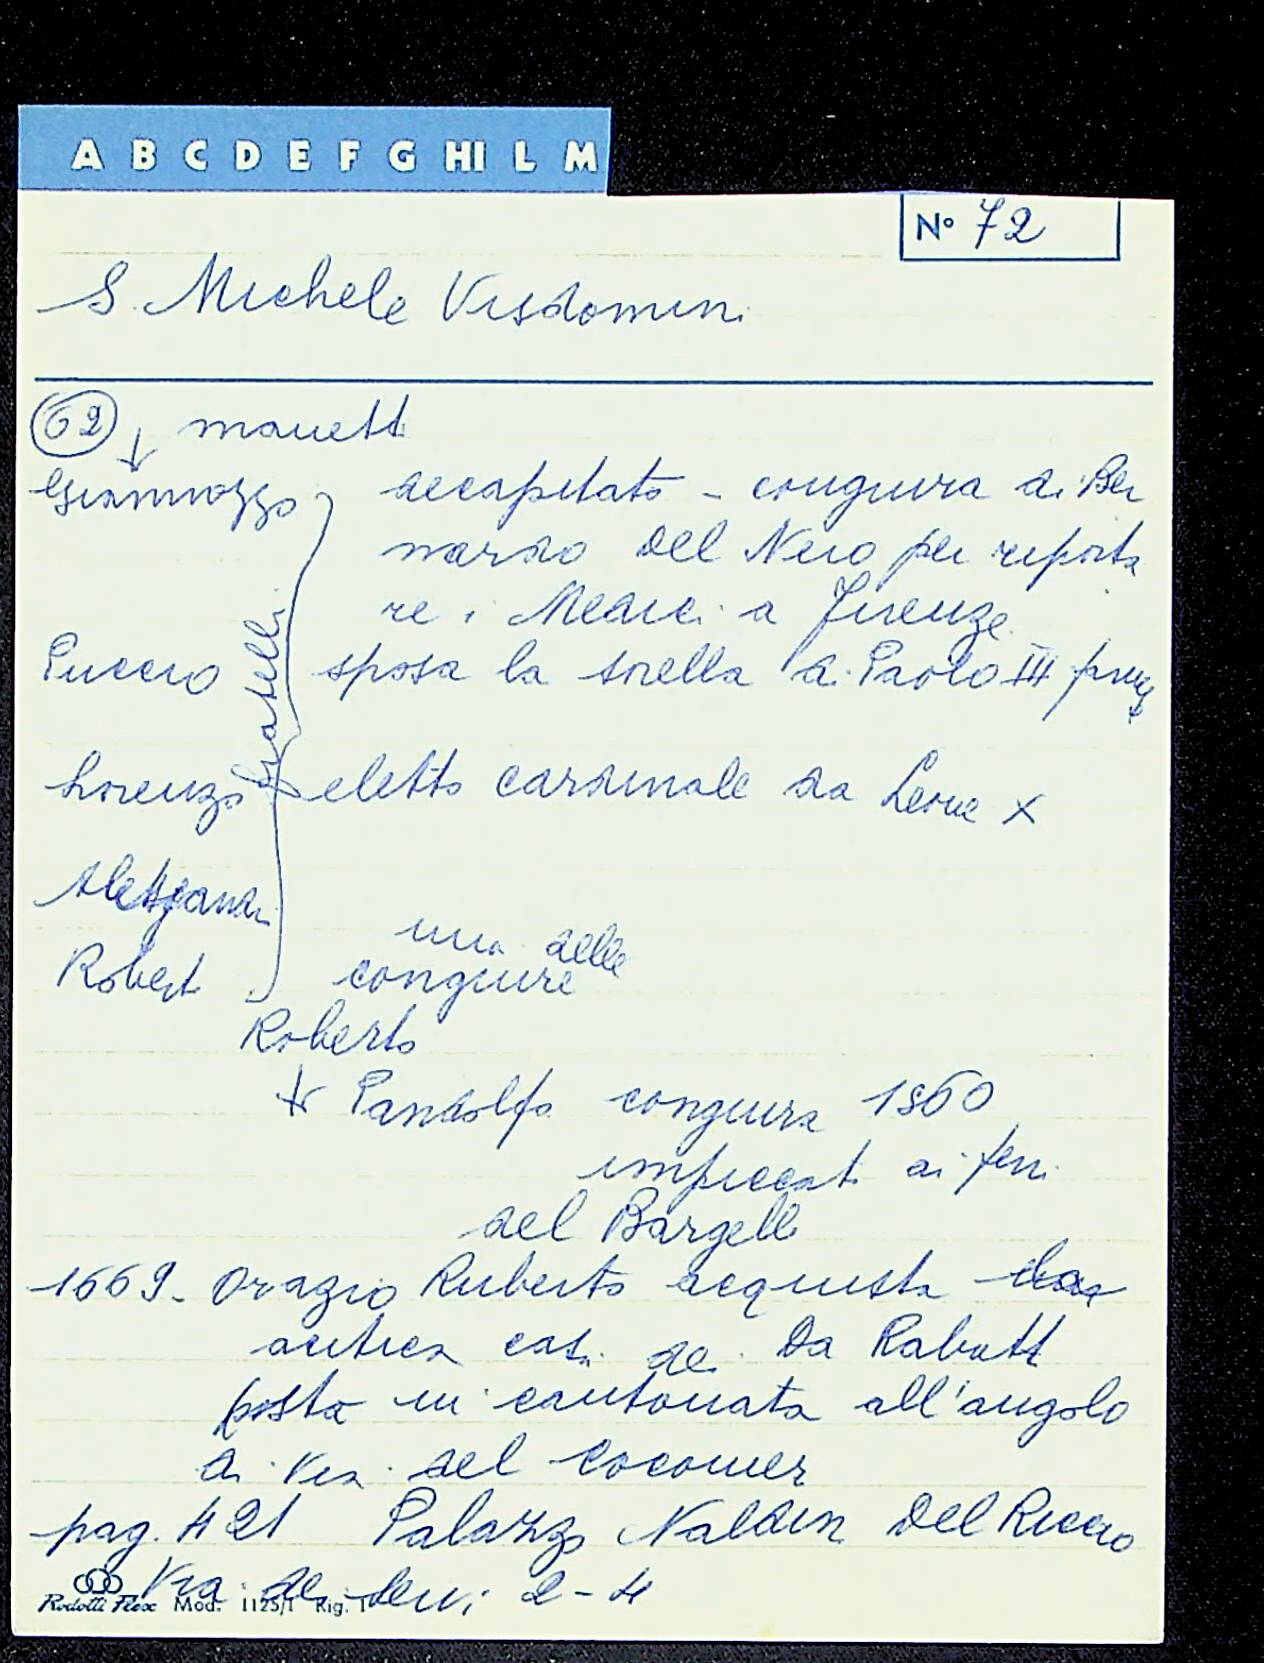 A B C D E F G HI L M
N° 72
S. Michele Visdomini
62 ↓ manetti
Giannozzo decapitato - congiura di Ber
nardo Del Nero per riporta
re i Medici a Firenze
Puccio sposa la sorella di Paolo III
fratelli
Lorenzo eletto cardinale da Leone X
Alessandri
una delle
Robert congiure
Roberto
↓ Pandolfo congiura 1560
impiccati ai ferri
del Bargello
1669 - Orazio Ruberto acquista
antica casa dei Da Rabatt
posta in cantonata all'angolo
di Via del Cocomer
pag. 421 Palazzo Naldin Del Riccio
Via dei Servi 2-4
Rodotti Flex Mod. 1125/1 Rig. 1